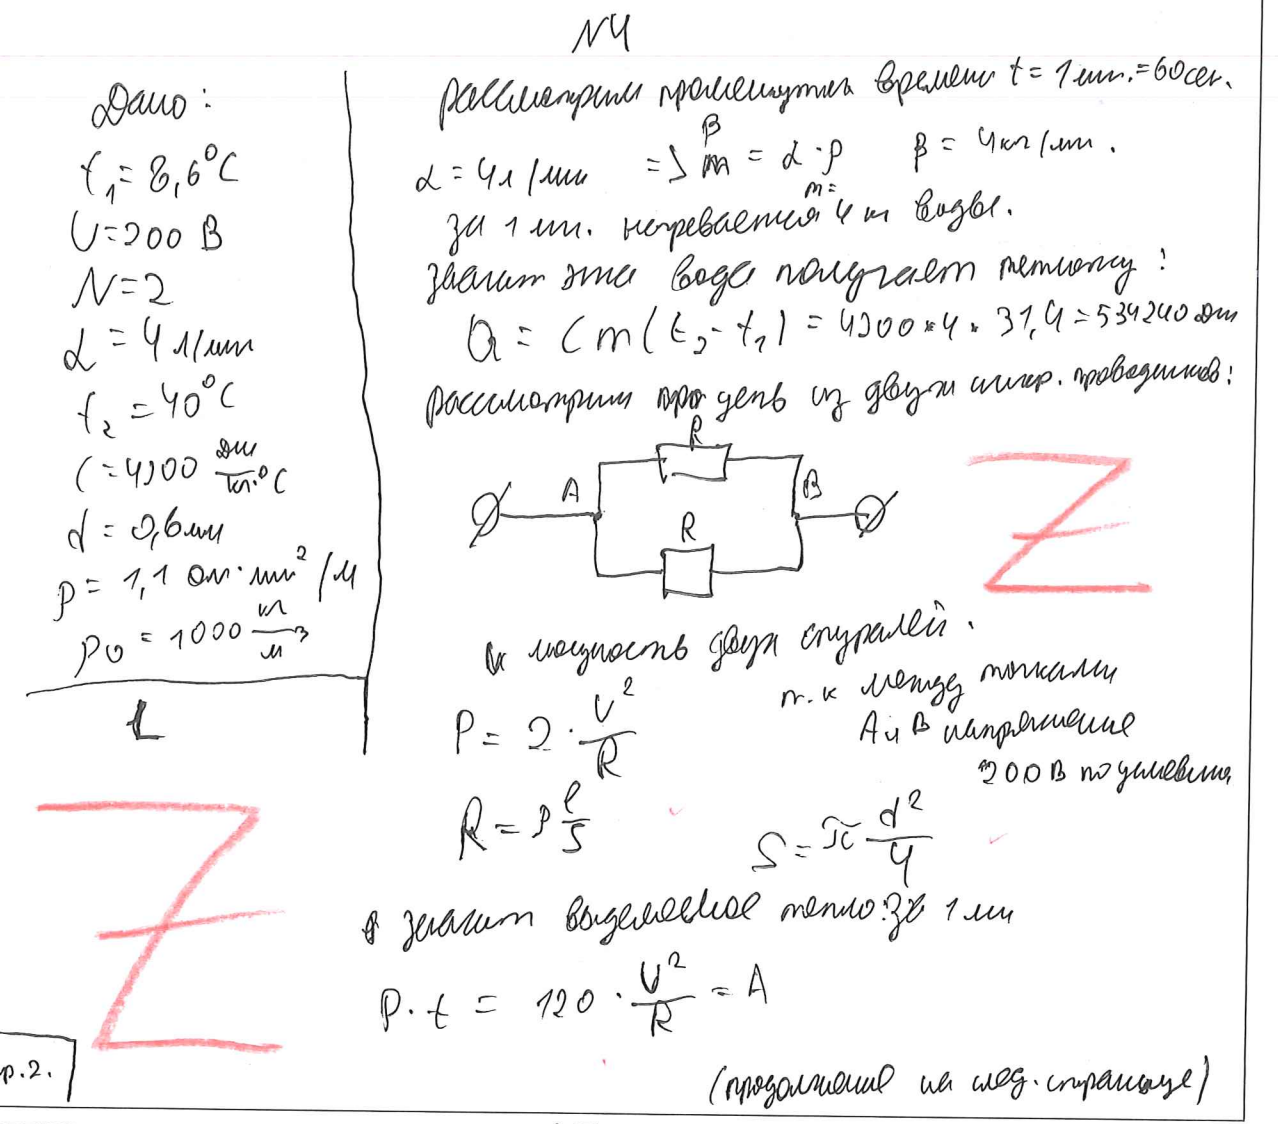 N4
Дано:
t₁ = 8,6°C
U = 200 В
N = 2
α = 4 л/мин
t₂ = 40°C
C = 4200 Дж/кг·°C
d = 0,6мм
ρ = 1,1 Ом·мм²/м
ρ₀ = 1000 кг/м³
L
Рассмотрим промежуток времени t = 1 мин. = 60 сек.
α = 4 л/мин => β m = α·ρ β = 4 кг/мин.
за 1 мин. нагревается m = 4 кг воды.
значит эта вода получает теплоту:
Q = Cm(t₂ - t₁) = 4200*4*31,4 = 534240 Дж
рассмотрим цепь из двух проводников:
R
A B
R
мощность двух спиралей.
P = 2·U²/R
т.к между точками
A и B напряжение
200В по условию
R = ρ l/S
S = π d²/4
значит выделяемое тепло за 1 мин
P·t = 120·U²/R = A
(продолжение на след. странице)
р.2.